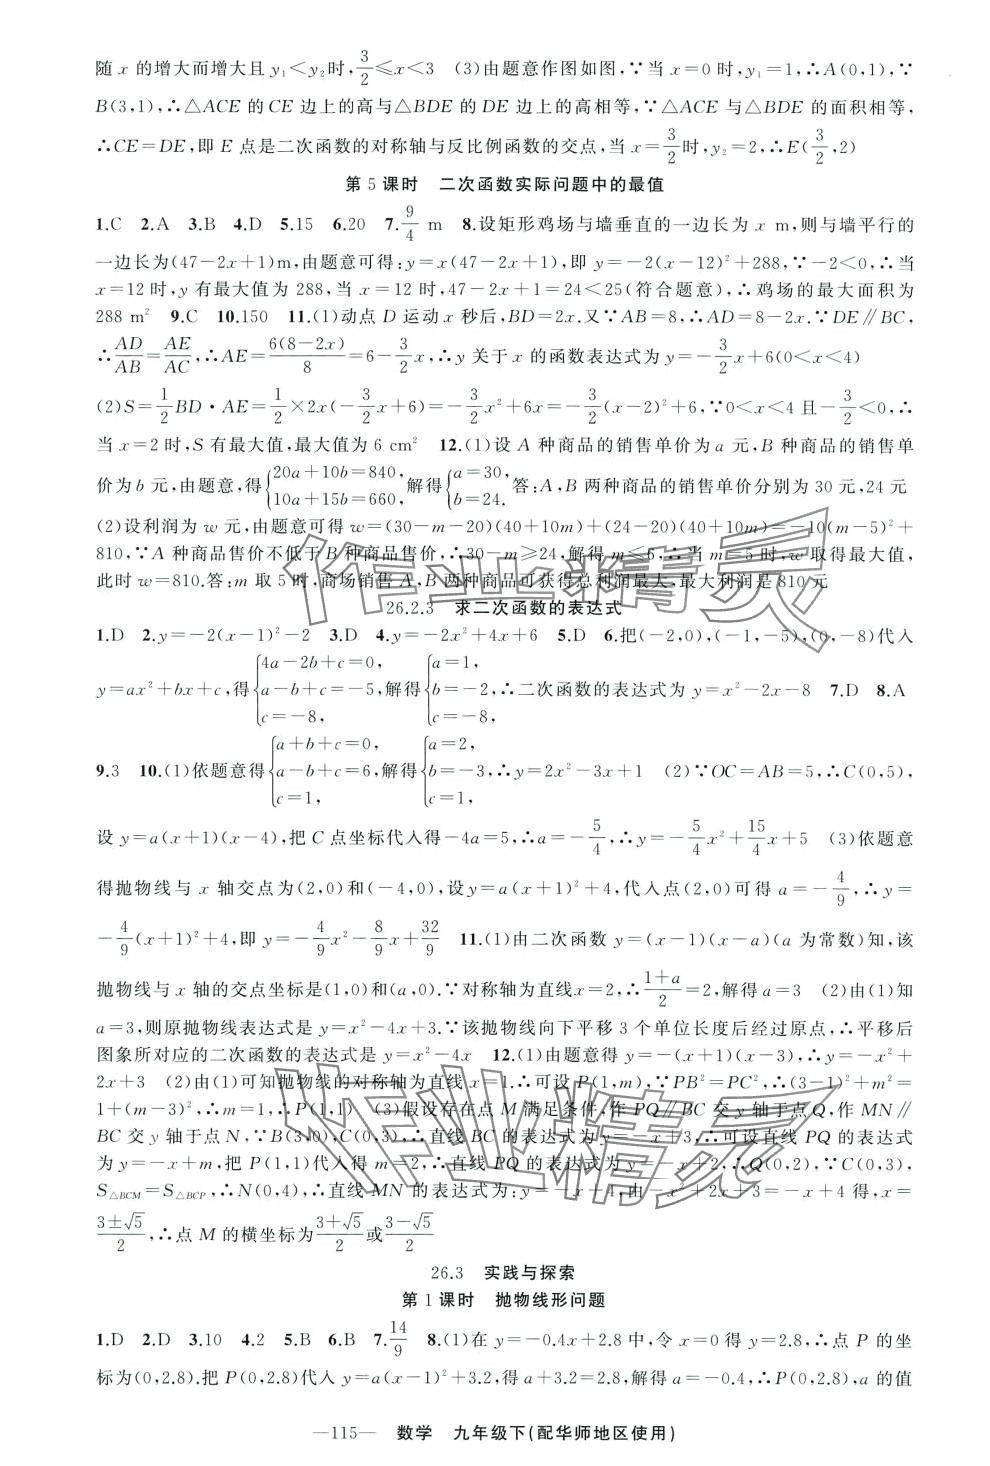 随 x 的增大而增大且 y₁<y₂时,3/2≤x<3 (3)由题意作图如图,∵当 x=0 时,y₁=1,∴A(0,1),∵
B(3,1),∴△ACE 的 CE 边上的高与△BDE 的 DE 边上的高相等,∵△ACE 与△BDE 的面积相等,
∴CE=DE,即 E 点是二次函数的对称轴与反比例函数的交点,当 x=3/2时,y₂=2,∴E(3/2,2)
第 5 课时 二次函数实际问题中的最值
1.C 2.A 3.B 4.D 5.15 6.20 7.9/4 m 8.设矩形鸡场与墙垂直的一边长为 x m,则与墙平行的
一边长为(47-2x+1)m,由题意可得:y=x(47-2x+1),即 y=-2(x-12)²+288,∵-2<0,∴当
x=12时,y 有最大值为 288,当 x=12 时,47-2x+1=24<25(符合题意),∴鸡场的最大面积为
288 m² 9.C 10.150 11.(1)动点 D 运动 x 秒后,BD=2x.又∵AB=8,∴AD=8-2x.∵DE∥BC,
∴AD/AB=AE/AC,∴AE=6(8-2x)/8=6-3/2x,∴y 关于 x 的函数表达式为 y=-3/2x+6(0<x<4)
(2)S=1/2BD·AE=1/2×2x(-3/2x+6)=-3/2x²+6x=-3/2(x-2)²+6,∵0<x<4 且-3/2<0,∴
当 x=2 时,S 有最大值,最大值为 6 cm² 12.(1)设 A 种商品的销售单价为 a 元,B 种商品的销售单
价为 b 元,由题意,得{20a+10b=840, 10a+15b=660,解得{a=30, b=24.答:A,B 两种商品的销售单价分别为 30 元,24 元
(2)设利润为 w 元,由题意可得 w=(30-m-20)(40+10m)+(24-20)(40+10m)=-10(m-5)²+
810,∵A 种商品售价不低于 B 种商品售价,∴30-m≥24,解得 m≤6,∴当 m=5 时,w 取得最大值,
此时 w=810.答:m 取 5 时,商场销售 A,B 两种商品可获得总利润最大,最大利润是 810 元
26.2.3 求二次函数的表达式
1.D 2.y=-2(x-1)²-2 3.D 4.y=-2x²+4x+6 5.D 6.把(-2,0),(-1,-5),(0,-8)代入
y=ax²+bx+c,得{4a-2b+c=0, a-b+c=-5, c=-8,解得{a=1, b=-2, c=-8,∴二次函数的表达式为 y=x²-2x-8 7.D 8.A
9.3 10.(1)依题意得{a+b+c=0, a-b+c=6, c=1,解得{a=2, b=-3, c=1,∴y=2x²-3x+1 (2)∵OC=AB=5,∴C(0,5),
设 y=a(x+1)(x-4),把 C 点坐标代入得-4a=5,∴a=-5/4,∴y=-5/4x²+15/4x+5 (3)依题意
得抛物线与 x 轴交点为(2,0)和(-4,0),设y=a(x+1)²+4,代入点(2,0)可得 a=-4/9,∴y=
-4/9(x+1)²+4,即 y=-4/9x²-8/9x+32/9 11.(1)由二次函数 y=(x-1)(x-a)(a 为常数)知,该
抛物线与 x 轴的交点坐标是(1,0)和(a,0).∵对称轴为直线x=2,∴1+a/2=2,解得 a=3 (2)由(1)知
a=3,则原抛物线表达式是 y=x²-4x+3.∵该抛物线向下平移 3 个单位长度后经过原点,∴平移后
图象所对应的二次函数的表达式是 y=x²-4x 12.(1)由题意得 y=-(x+1)(x-3),∴y=-x²+
2x+3 (2)由(1)可知抛物线的对称轴为直线 x=1.∴可设 P(1,m),∵PB²=PC²,∴(3-1)²+m²=
1+(m-3)²,∴m=1,∴P(1,1) (3)假设存在点 M 满足条件,作 PQ∥BC 交 y 轴于点Q,作 MN∥
BC 交 y 轴于点 N,∵B(3,0),C(0,3),∴直线 BC 的表达式为 y=-x+3,∴可设直线 PQ 的表达式
为 y=-x+m,把 P(1,1)代入得 m=2,∴直线 PQ 的表达式为 y=-x+2,∴Q(0,2),∵C(0,3),
S△BCM=S△BCP,∴N(0,4),∴直线 MN 的表达式为:y=-x-4,由-x²+2x+3=-x+4 得,x=
3±√5/2,∴点 M 的横坐标为3+√5/2或3-√5/2
26.3 实践与探索
第 1 课时 抛物线形问题
1.D 2.D 3.10 4.2 5.B 6.B 7.14/9 8.(1)在 y=-0.4x+2.8 中,令 x=0 得 y=2.8,∴点 P 的坐
标为(0,2.8).把 P(0,2.8)代入 y=a(x-1)²+3.2,得 a+3.2=2.8,解得 a=-0.4,∴P(0,2.8),a 的值
—115— 数学 九年级下(配华师地区使用)
作业精灵
作业精灵